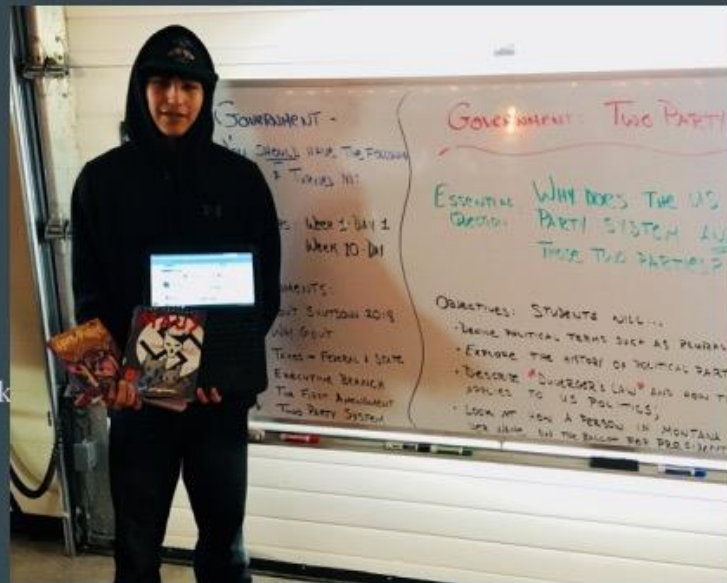 GOVERNMENT -
YOU SHOULD HAVE THE FOLLOWING
& TURNED IN:
: WEEK 1 DAY 1
WEEK 10 DAY
MENTS:
GOV'T SHUTDOWN 2018
WHY GOVT
TAXES - FEDERAL & STATE
EXECUTIVE BRANCH
THE FIRST AMENDMENT
TWO PARTY SYSTEM
GOVERNMENT: TWO PARTY
ESSENTIAL QUESTION: WHY DOES THE US
PARTY SYSTEM AN
THESE TWO PARTIES?
OBJECTIVES: STUDENTS WILL...
· DEFINE POLITICAL TERMS SUCH AS PLURAL
· EXPLORE THE HISTORY OF POLITICAL PART
· DESCRIBE "DUVERGER'S LAW" AND HOW T
APPLIES TO US POLITICS;
· LOOK AT HOW A PERSON IN MONTANA
NAME ON THE BALLOT FOR PRESIDENT
k